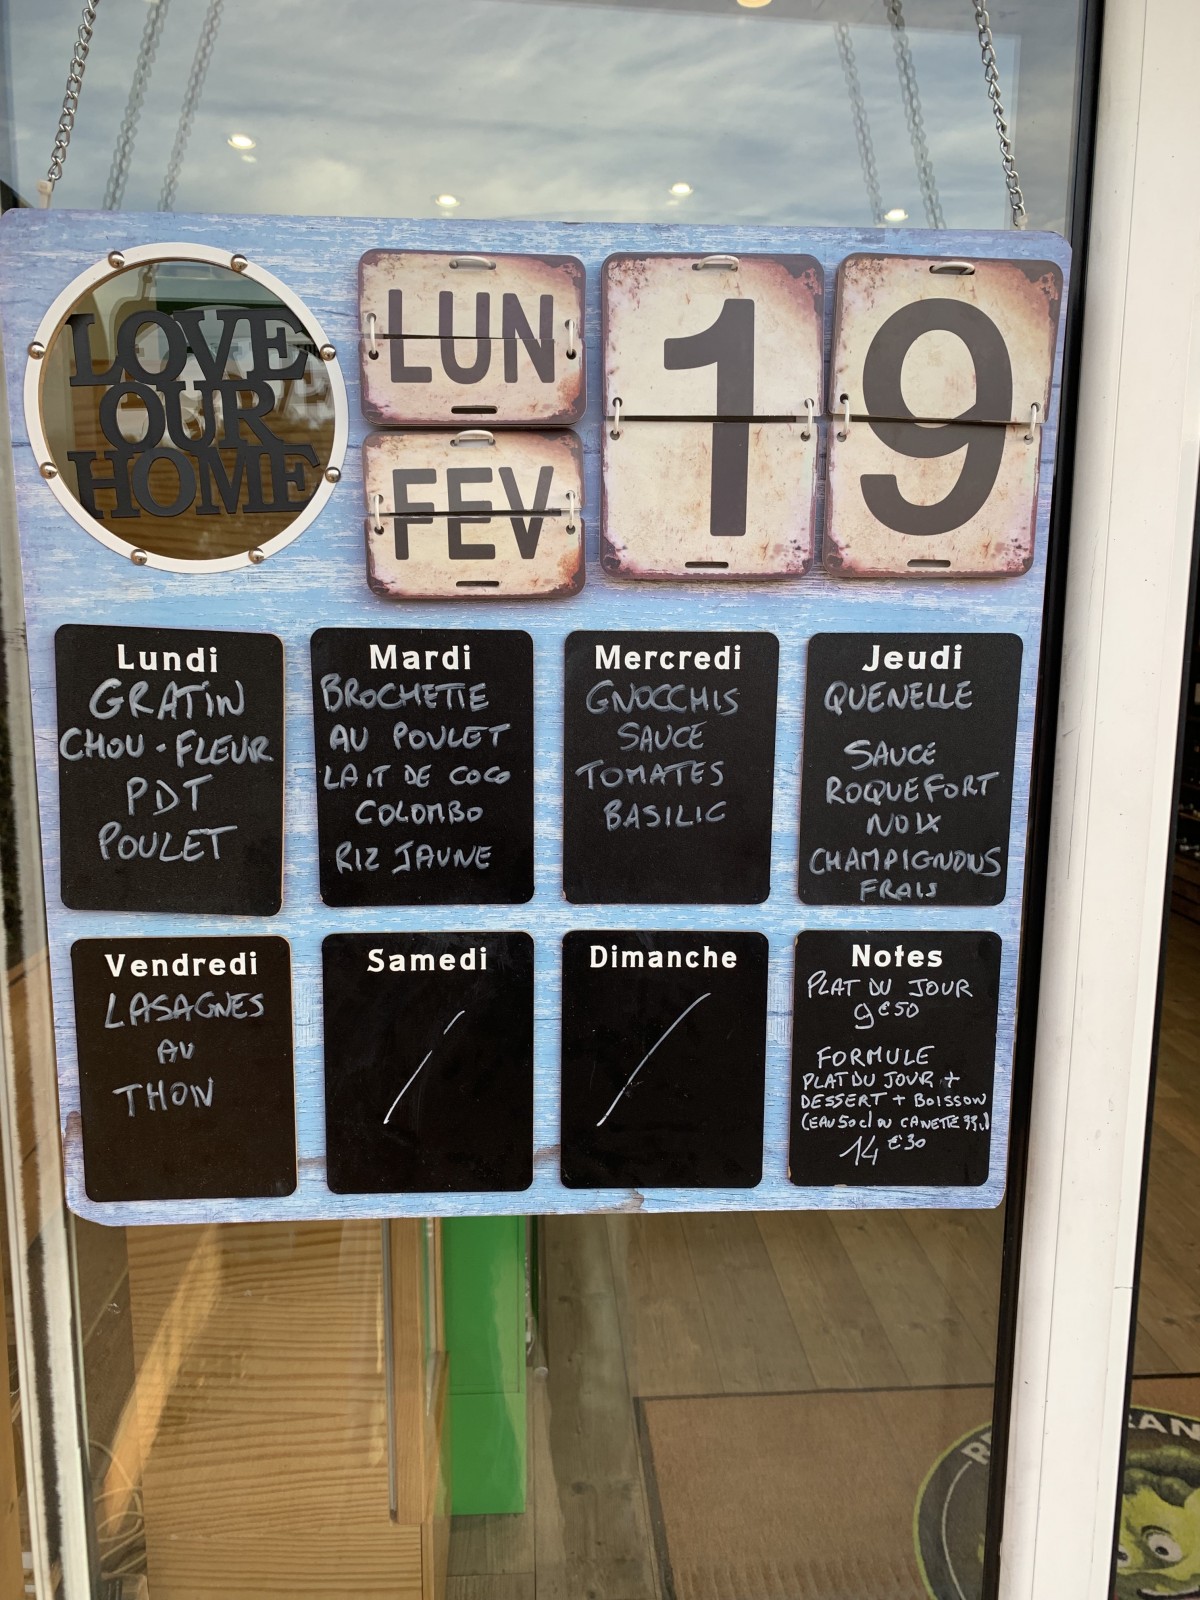 LOVE
OUR
HOME
LUN
FEV
19
Lundi
GRATIN
CHOU-FLEUR
PDT
POULET
Mardi
BROCHETTE
AU POULET
LAIT DE COCO
COLOMBO
RIZ JAUNE
Mercredi
GNOCCHIS
SAUCE
TOMATES
BASILIC
Jeudi
QUENELLE
SAUCE
ROQUEFORT
NOIX
CHAMPIGNONS
FRAIS
Vendredi
LASAGNES
AU
THON
Samedi
Dimanche
Notes
PLAT DU JOUR
9€50
FORMULE
PLAT DU JOUR +
DESSERT + BOISSON
(EAU 50cl OU CANETTE 33cl)
14€30